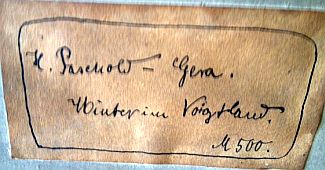 H. Paschold – Gera.
Winter im Voigtland.
M 500.